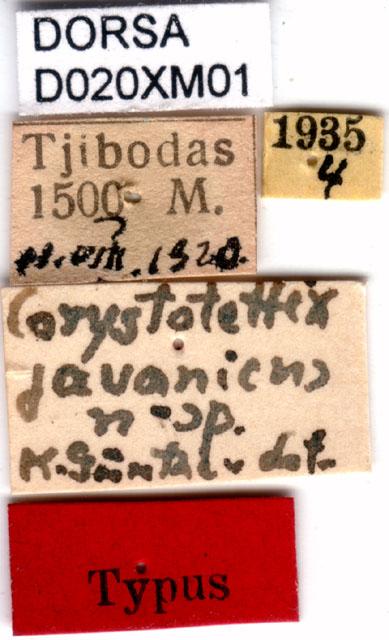 DORSA
D020XM01
Tjibodas
1500 M.
?
VIII. 1920.
1935
4
Corystotettix
javanicus
n. sp.
K. Günther det.
Typus